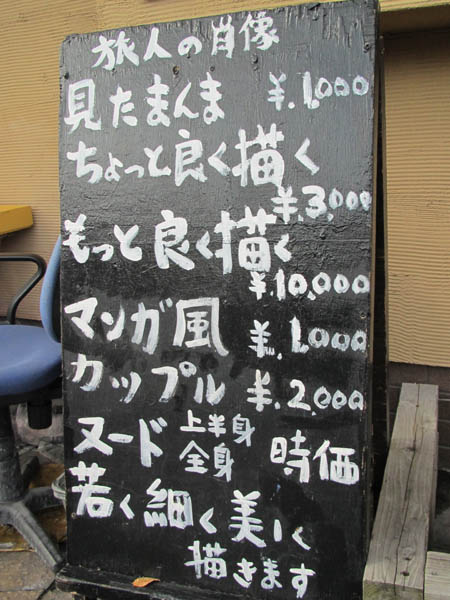 旅人の肖像
見たまんま ¥.1,000
ちょっと良く描く
¥.3,000
もっと良く描く
¥.10,000
マンガ風 ¥.1,000
カップル ¥.2,000
ヌード 上半身 時価
全身
若く細く美しく
描きます